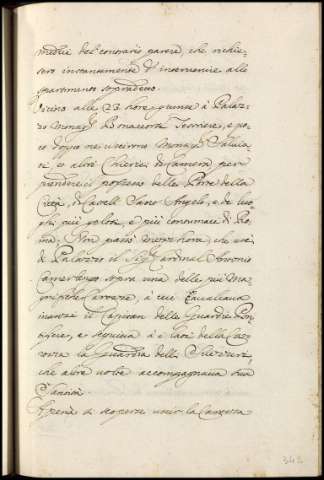 medie del contrario parere, che richie-
sero instantemente d'intervenire alle
spartimento sopradetto.
Vicino alle 23 hore giunse à Palaz-
zo Monsig.r Bonaccorsi Tesoriere, e po-
co dopo ne uscirono Monsig.r
et altri Chierici di Camera per
prendere il possesso delle Porte della
Città, di Castell Sant' Angelo, e de luo-
ghi più gelosi, e più consumaci di Ro-
ma. Non passò mezz'hora, che uscì
di Palazzo il Sig.r Cardinal Antonio
Camerlengo sopra una delle più Ma-
gnifiche Carrozze, à cui cavalcava
inanzi il Capitan delle Guardie Pon-
tificie, e seguiva à i lati della Car-
rozza la Guardia delli Svizzeri,
che altre volte accompagnava Sua
Santità.
Spena si scoperse uscir la Carrozza
342